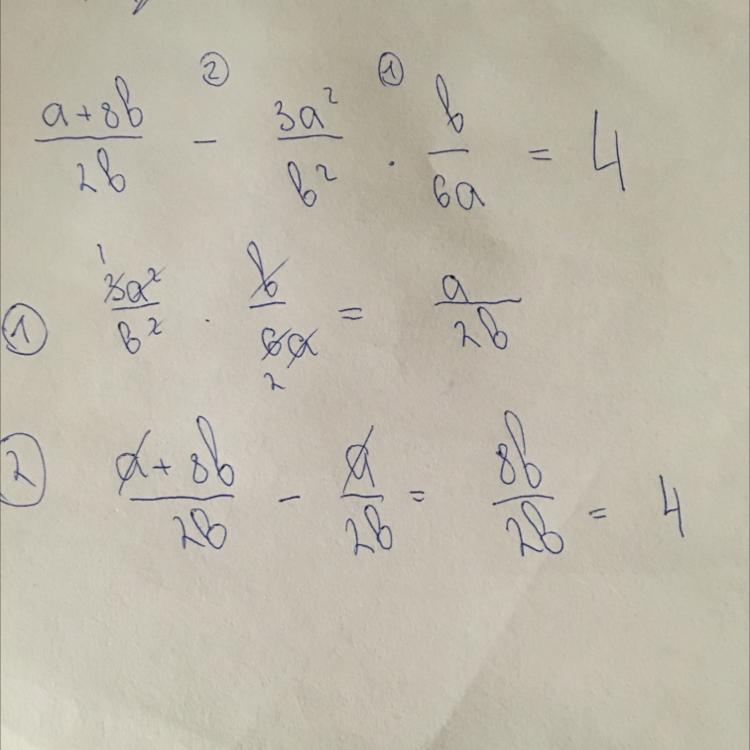 ② ①
(a+8b)/(2b) - (3a²)/(b²) · b/(6a) = 4
① (3a²)/(b²) · b/(6a) = a/(2b)
1 2
② (a+8b)/(2b) - a/(2b) = (8b)/(2b) = 4